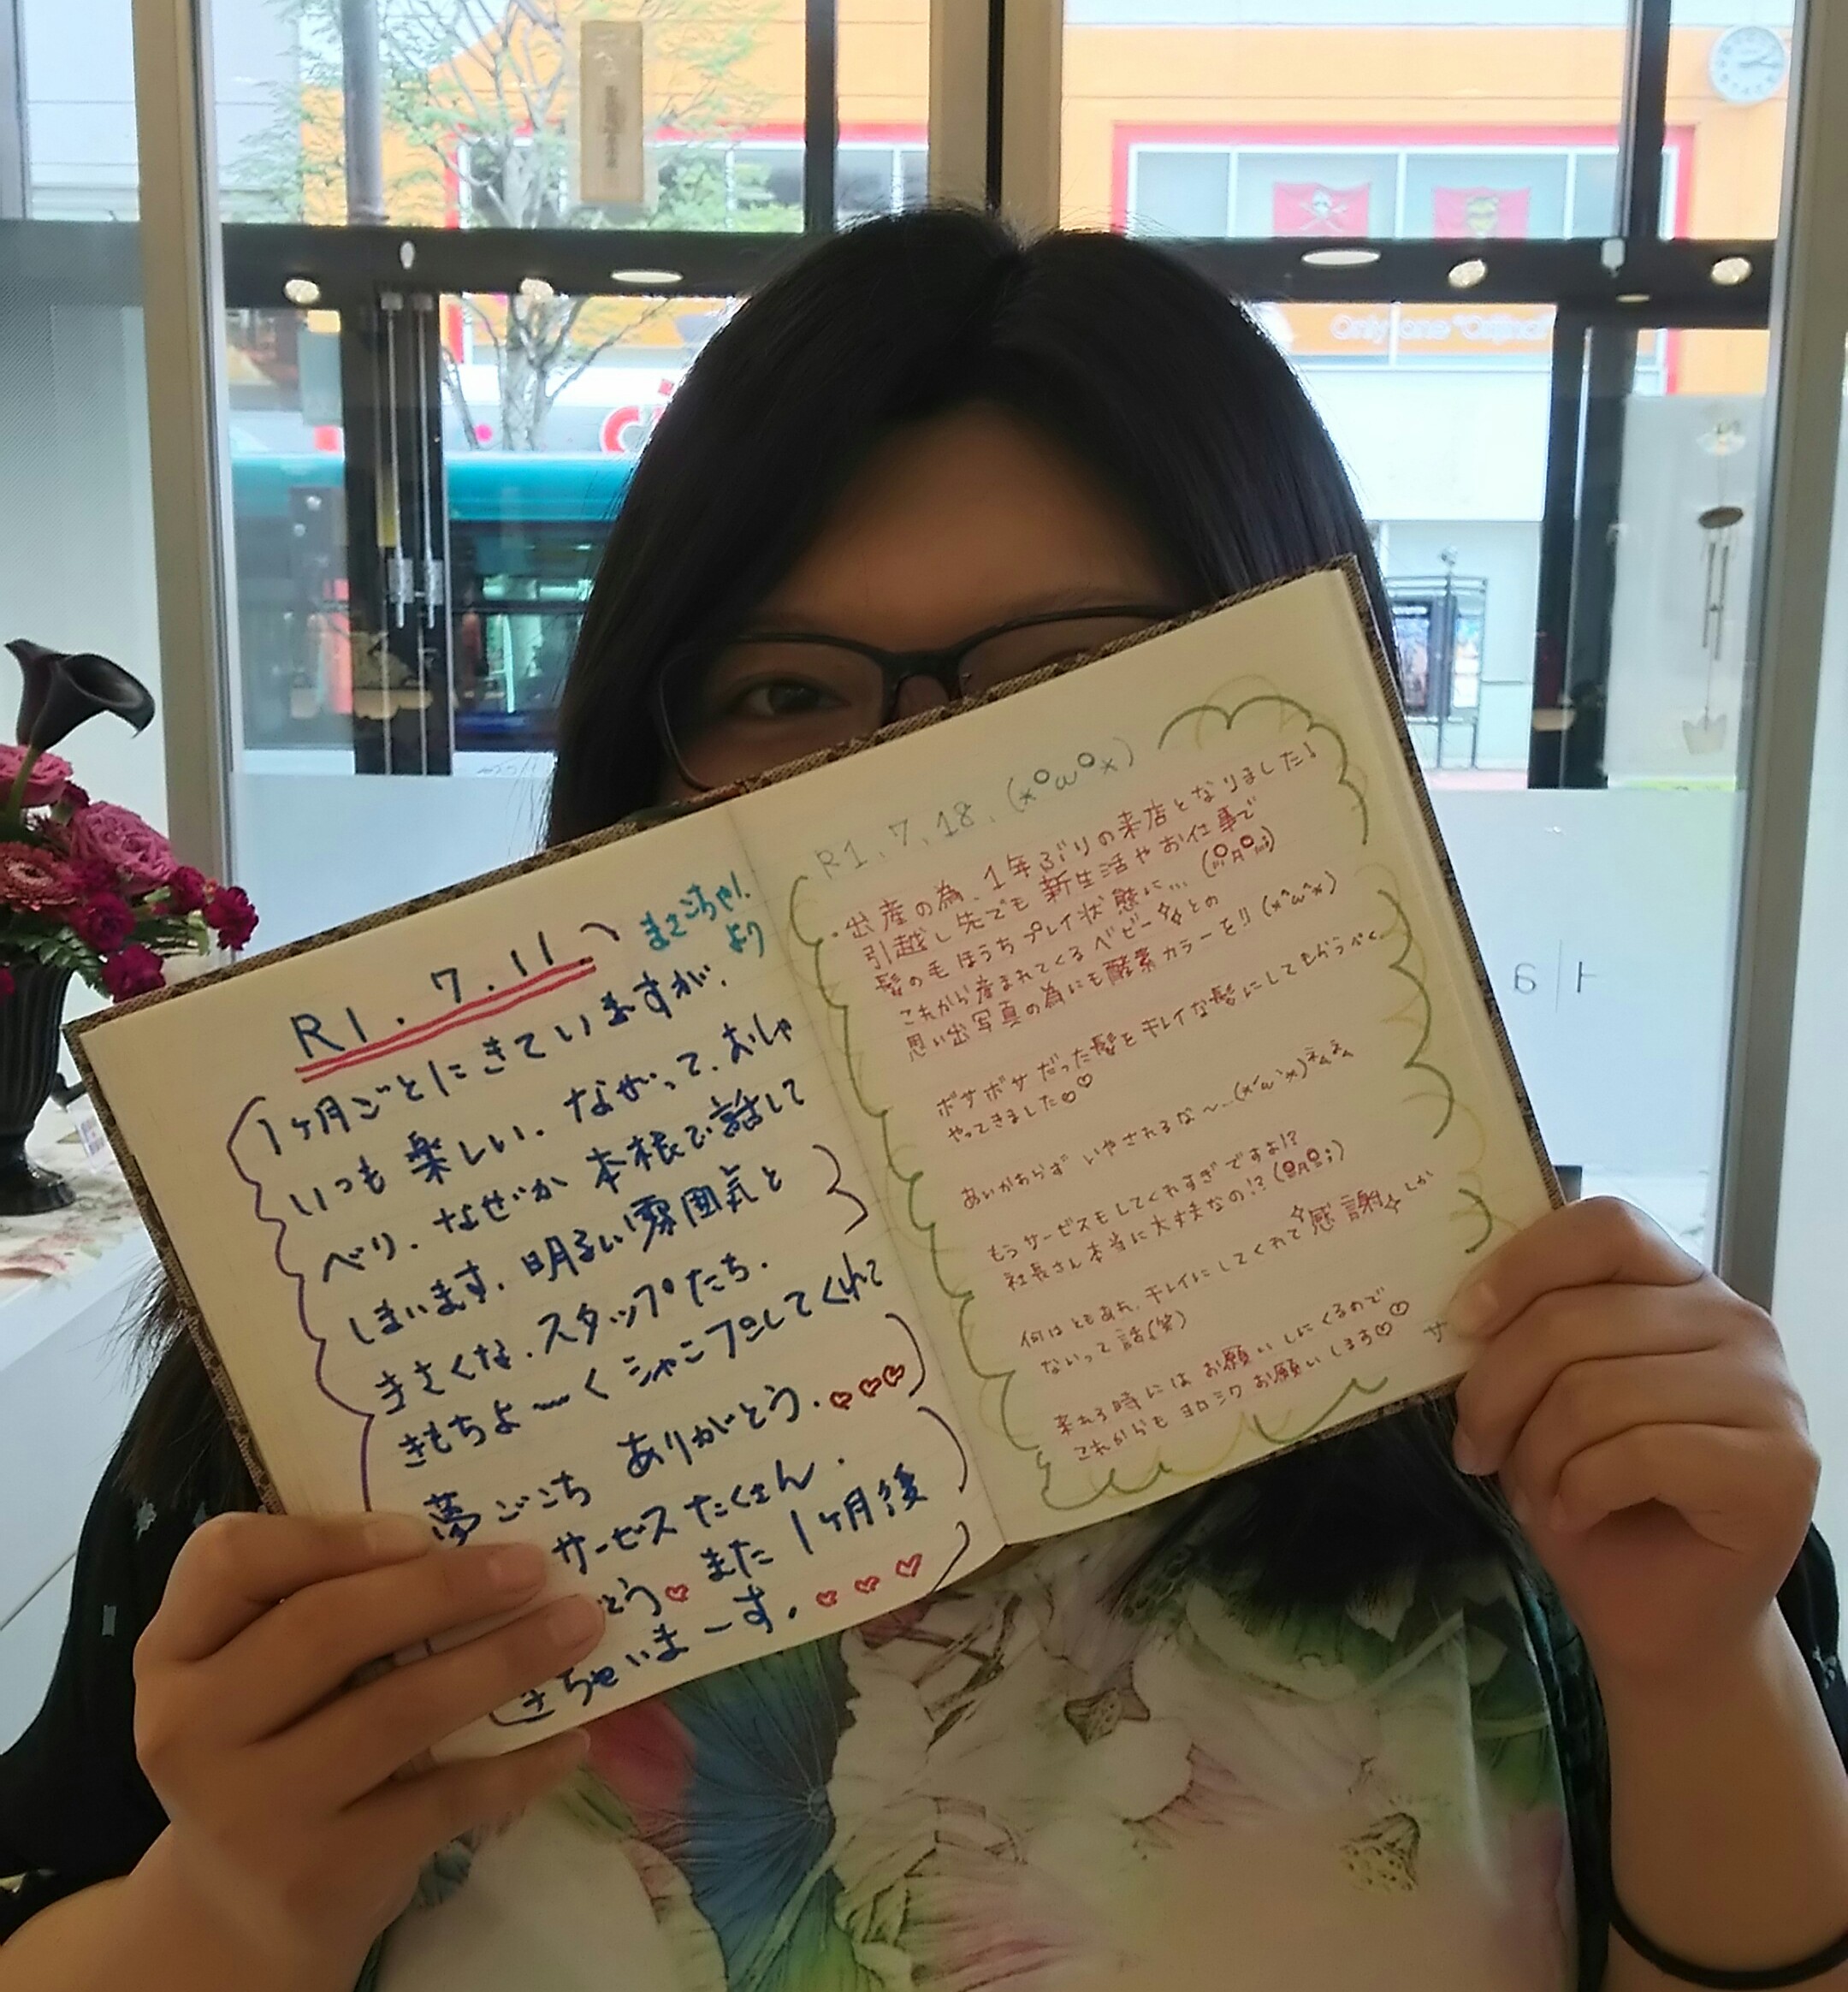 R1.7.11.
まさこちゃん
より
1ヶ月ごとにきていますが、
いつも楽しい、ながって、おしゃ
べり、なぜか本根で話して
しまいます。明るい雰囲気と
きさくな、スタッフたち、
きもちよ〜くシャンプしてくれて
夢ごこちありがとう。♡♡♡
サービスたくさん、
とう♡また1ヶ月後
きちゃいまーす。♡♡♡
R1、7、18、
・出産の為、1年ぶりの来店となりました!
引越し先でも新生活やお仕事で
髪の毛ほうちプレイ状態に…
これから産まれてくるベビー☆☆との
思い出写真の為にも酵素カラーを!!(x^ω^x)
ボサボサだった髪をキレイな髪にしてもらうべく
やってきました♡♡
あいかわらずいやされるな〜…(x'ω'x)
もうサービスもしてくれすぎですよ!?
社長さん本当に大丈夫なの!?
何はともあれ、キレイにしてくれて☆感謝☆しか
ないって話(笑)
来れる時にはお願いしにくるので
これからもヨロシクお願いします♡♡
サ
Only one "Original"